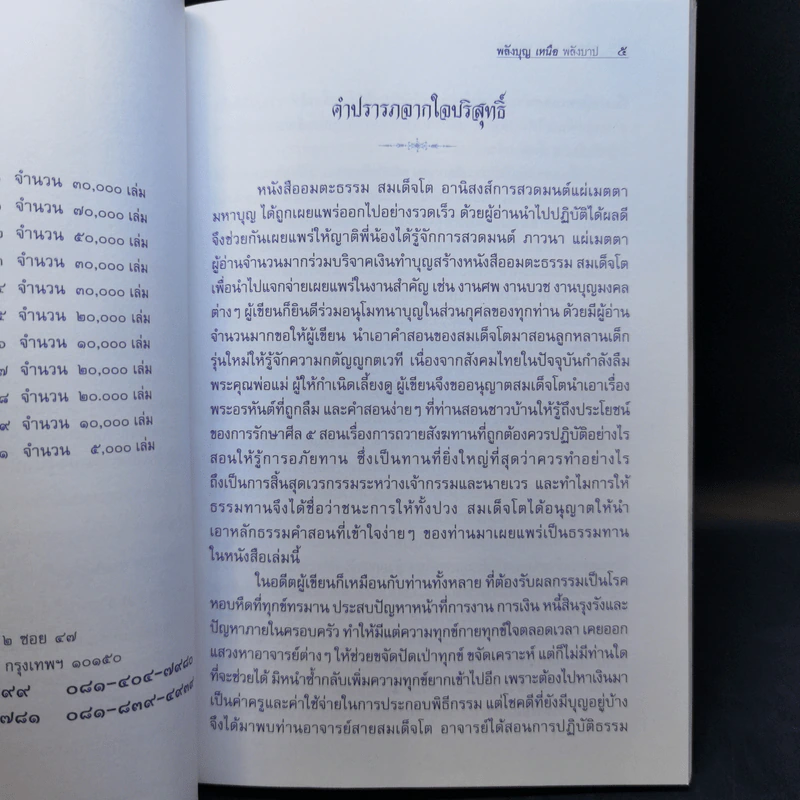 จำนวน ๓๐,๐๐๐ เล่ม
จำนวน ๗๐,๐๐๐ เล่ม
จำนวน ๕๐,๐๐๐ เล่ม
จำนวน ๓๐,๐๐๐ เล่ม
จำนวน ๓๐,๐๐๐ เล่ม
๕ จำนวน ๒๐,๐๐๐ เล่ม
๖ จำนวน ๑๐,๐๐๐ เล่ม
๗ จำนวน ๒๐,๐๐๐ เล่ม
๘ จำนวน ๒๐.๐๐๐ เล่ม
๙ จำนวน ๑๐,๐๐๐ เล่ม
๑ จำนวน ๕,๐๐๐ เล่ม
๒ ซอย ๔๗
กรุงเทพฯ ๑๐๑๕๐
๙๙ ๐๘๑-๔๐๔-๗๙๘๐
๗๘๑ ๐๘๑-๘๓๙-๔๙๓๕
พลังบุญ เหนือ พลังบาป ๕
คำปรารภจากใจบริสุทธิ์
หนังสืออมตะธรรม สมเด็จโต อานิสงส์การสวดมนต์แผ่เมตตา
มหาบุญ ได้ถูกเผยแพร่ออกไปอย่างรวดเร็ว ด้วยผู้อ่านนำไปปฏิบัติได้ผลดี
จึงช่วยกันเผยแพร่ให้ญาติพี่น้องได้รู้จักการสวดมนต์ ภาวนา แผ่เมตตา
ผู้อ่านจำนวนมากร่วมบริจาคเงินทำบุญสร้างหนังสืออมตะธรรม สมเด็จโต
เพื่อนำไปแจกจ่ายเผยแพร่ในงานสำคัญ เช่น งานศพ งานบวช งานบุญมงคล
ต่างๆ ผู้เขียนก็ยินดีร่วมอนุโมทนาบุญในส่วนกุศลของทุกท่าน ด้วยมีผู้อ่าน
จำนวนมากขอให้ผู้เขียน นำเอาคำสอนของสมเด็จโตมาสอนลูกหลานเด็ก
รุ่นใหม่ให้รู้จักความกตัญญูกตเวที เนื่องจากสังคมไทยในปัจจุบันกำลังลืม
พระคุณพ่อแม่ ผู้ให้กำเนิดเลี้ยงดู ผู้เขียนจึงขออนุญาตสมเด็จโตนำเอาเรื่อง
พระอรหันต์ที่ถูกลืม และคำสอนง่ายๆ ที่ท่านสอนชาวบ้านให้รู้ถึงประโยชน์
ของการรักษาศีล ๕ สอนเรื่องการถวายสังฆทานที่ถูกต้องควรปฏิบัติอย่างไร
สอนให้รู้การอภัยทาน ซึ่งเป็นทานที่ยิ่งใหญ่ที่สุดว่าควรทำอย่างไร
ถึงเป็นการสิ้นสุดเวรกรรมระหว่างเจ้ากรรมและนายเวร และทำไมการให้
ธรรมทานจึงได้ชื่อว่าชนะการให้ทั้งปวง สมเด็จโตได้อนุญาตให้นำ
เอาหลักธรรมคำสอนที่เข้าใจง่ายๆ ของท่านมาเผยแพร่เป็นธรรมทาน
ในหนังสือเล่มนี้
ในอดีตผู้เขียนก็เหมือนกับท่านทั้งหลาย ที่ต้องรับผลกรรมเป็นโรค
หอบหืดที่ทุกข์ทรมาน ประสบปัญหาหน้าที่การงาน การเงิน หนี้สินรุงรังและ
ปัญหาภายในครอบครัว ทำให้มีแต่ความทุกข์กายทุกข์ใจตลอดเวลา เคยออก
แสวงหาอาจารย์ต่างๆ ให้ช่วยขจัดปัดเป่าทุกข์ ขจัดเคราะห์ แต่ก็ไม่มีท่านใด
ที่จะช่วยได้ มิหนำซ้ำกลับเพิ่มความทุกข์ยากเข้าไปอีก เพราะต้องไปหาเงินมา
เป็นค่าครูและค่าใช้จ่ายในการประกอบพิธีกรรม แต่โชคดีที่ยังมีบุญอยู่บ้าง
จึงได้มาพบท่านอาจารย์สายสมเด็จโต อาจารย์ได้สอนการปฏิบัติธรรม